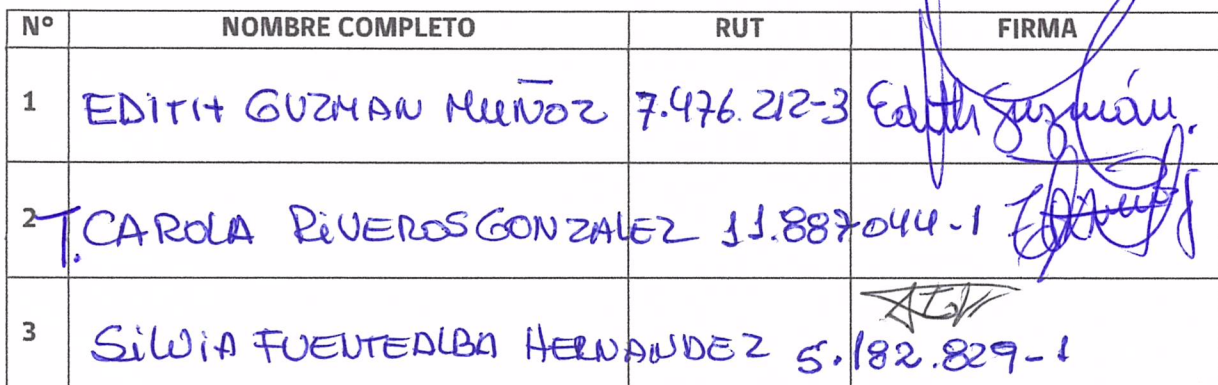 N° NOMBRE COMPLETO RUT FIRMA
1 EDITH GUZMAN MUÑOZ 7.476.212-3 Edith Guzmán.
2 T. CAROLA RIVEROS GONZALEZ 11.887044-1
3 SILVIA FUENTEALBA HERNANDEZ 5.182.829-1